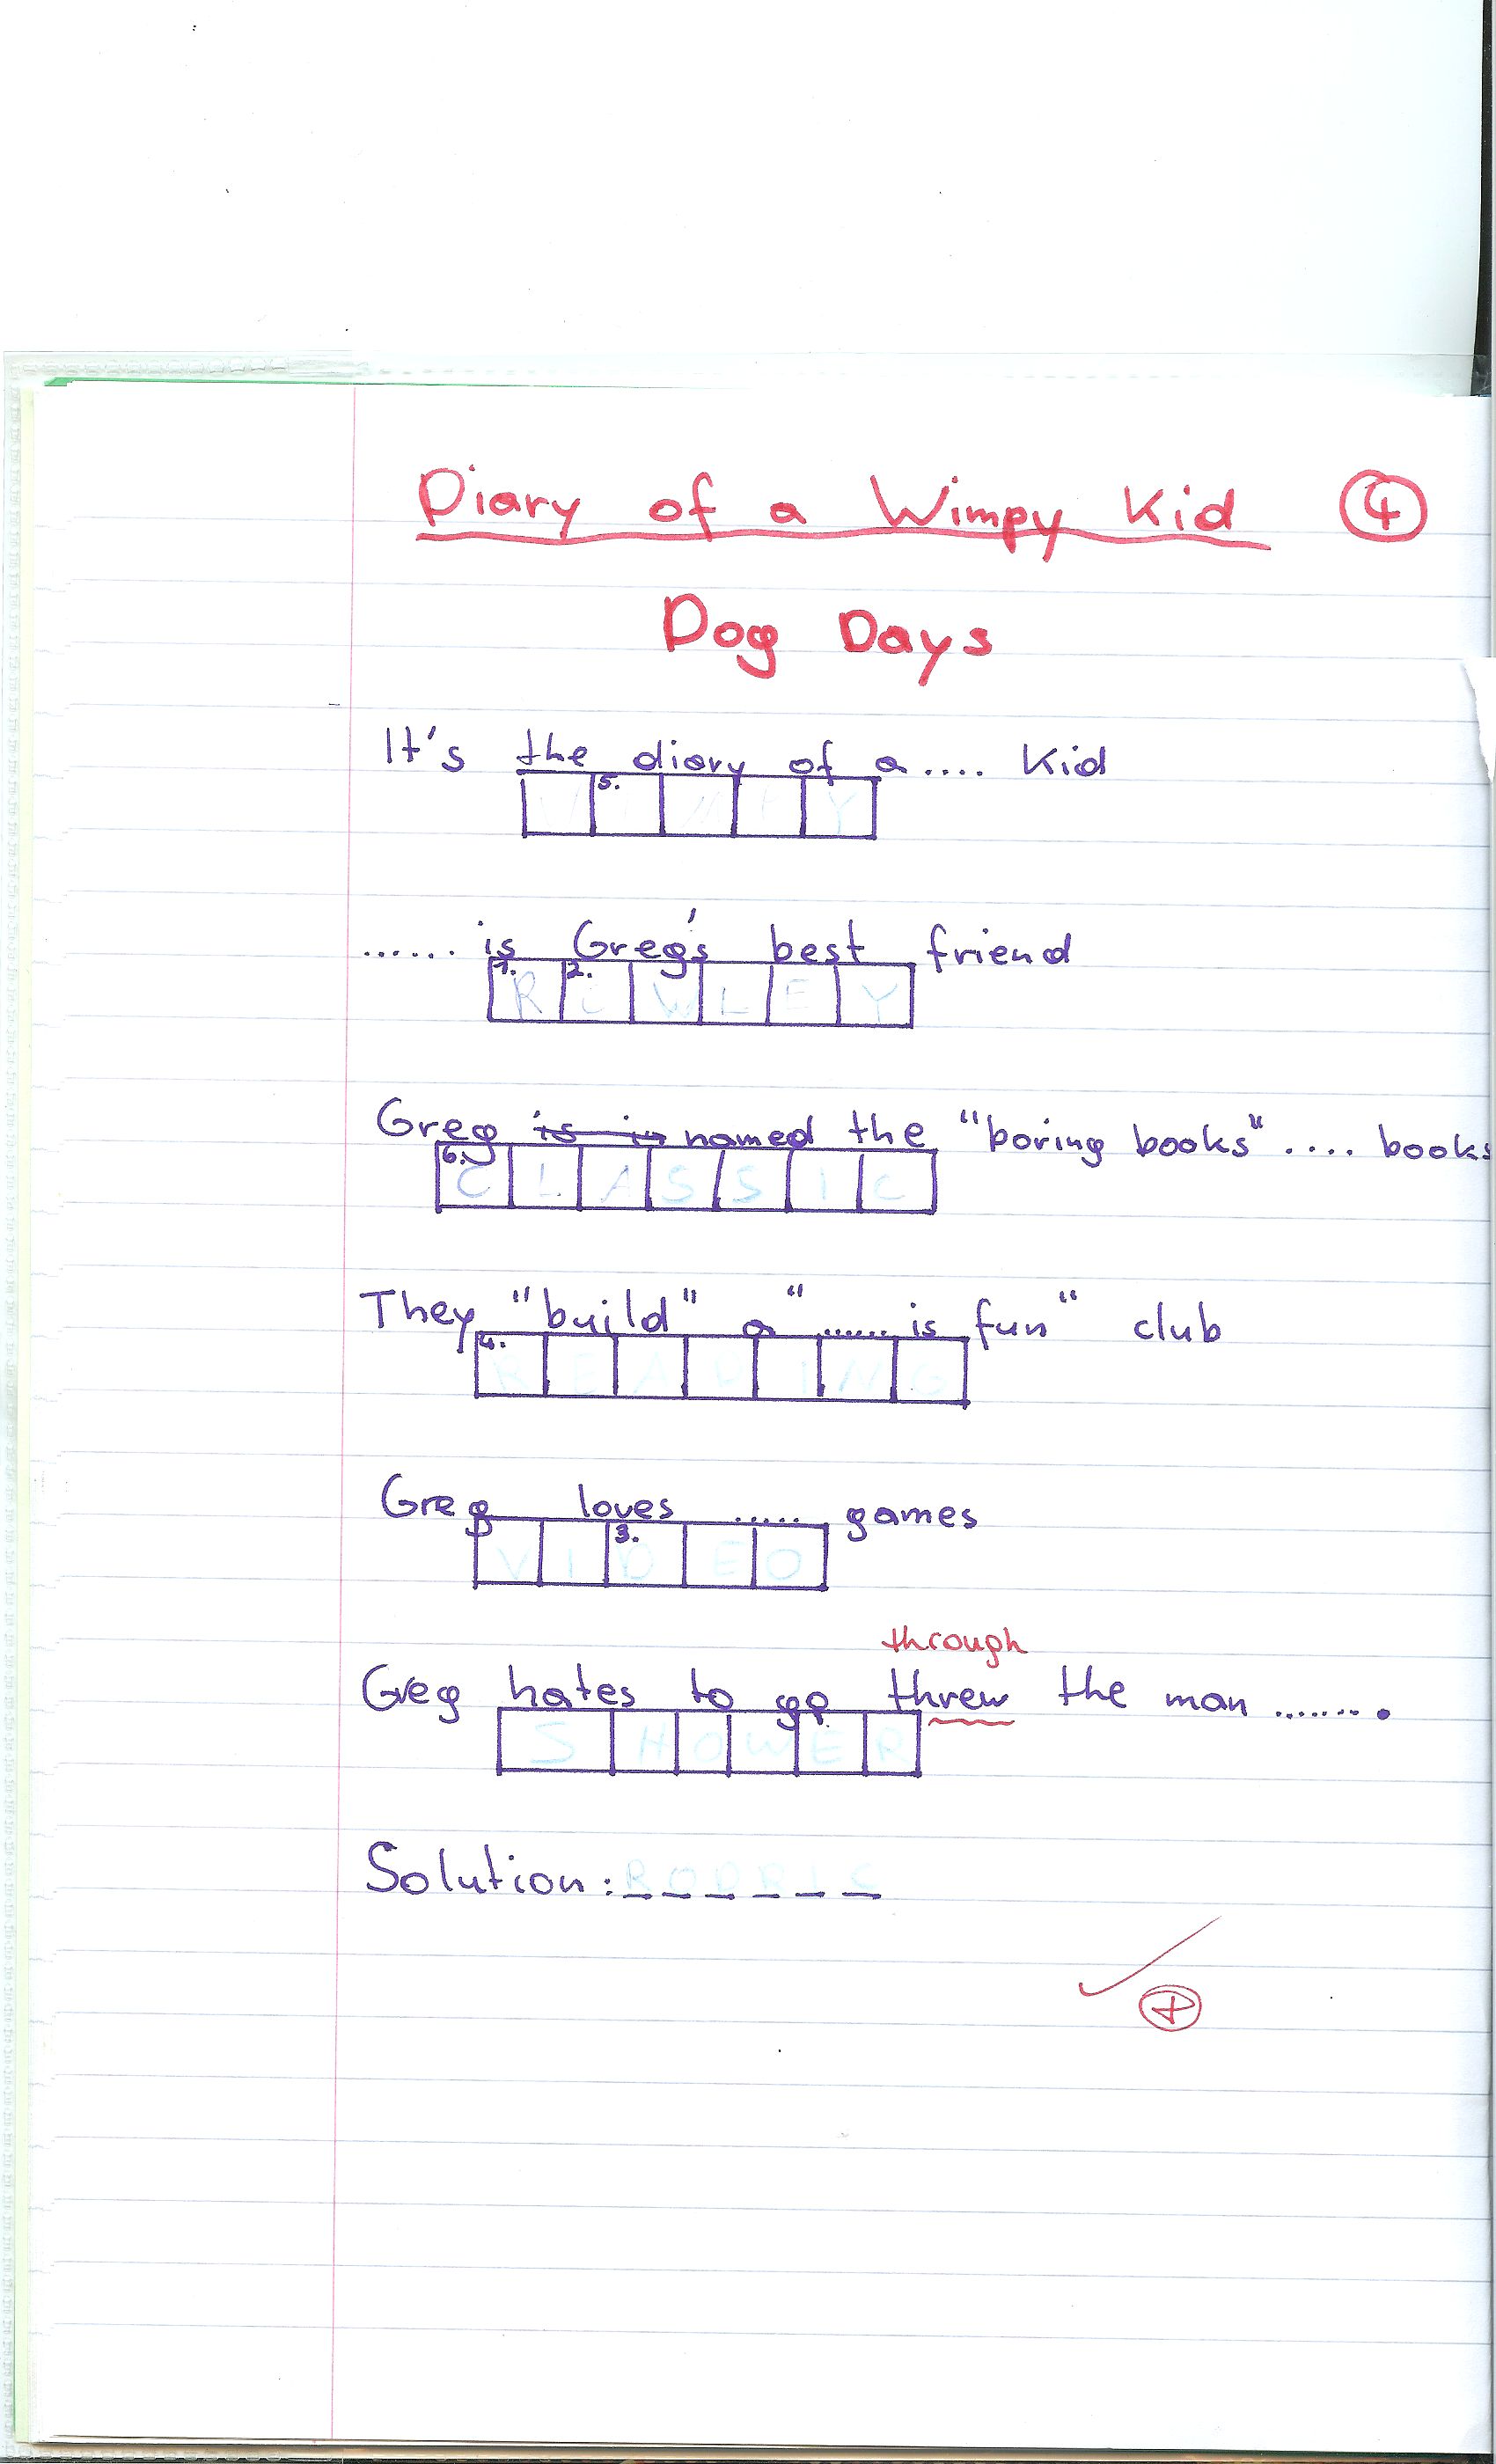 Diary of a Wimpy Kid 4
Dog Days
It's the diary of a .... Kid
5.
W I M P Y
...... is Greg's best friend
1. 2.
R O W L E Y
Greg is in named the "boring books" .... books
6.
C L A S S I C
They "build" a "...... is fun" club
4.
R E A D I N G
Greg loves ..... games
3.
V I D E O
through
Greg hates to go threw the man ........
S H O W E R
Solution: R O D R I C